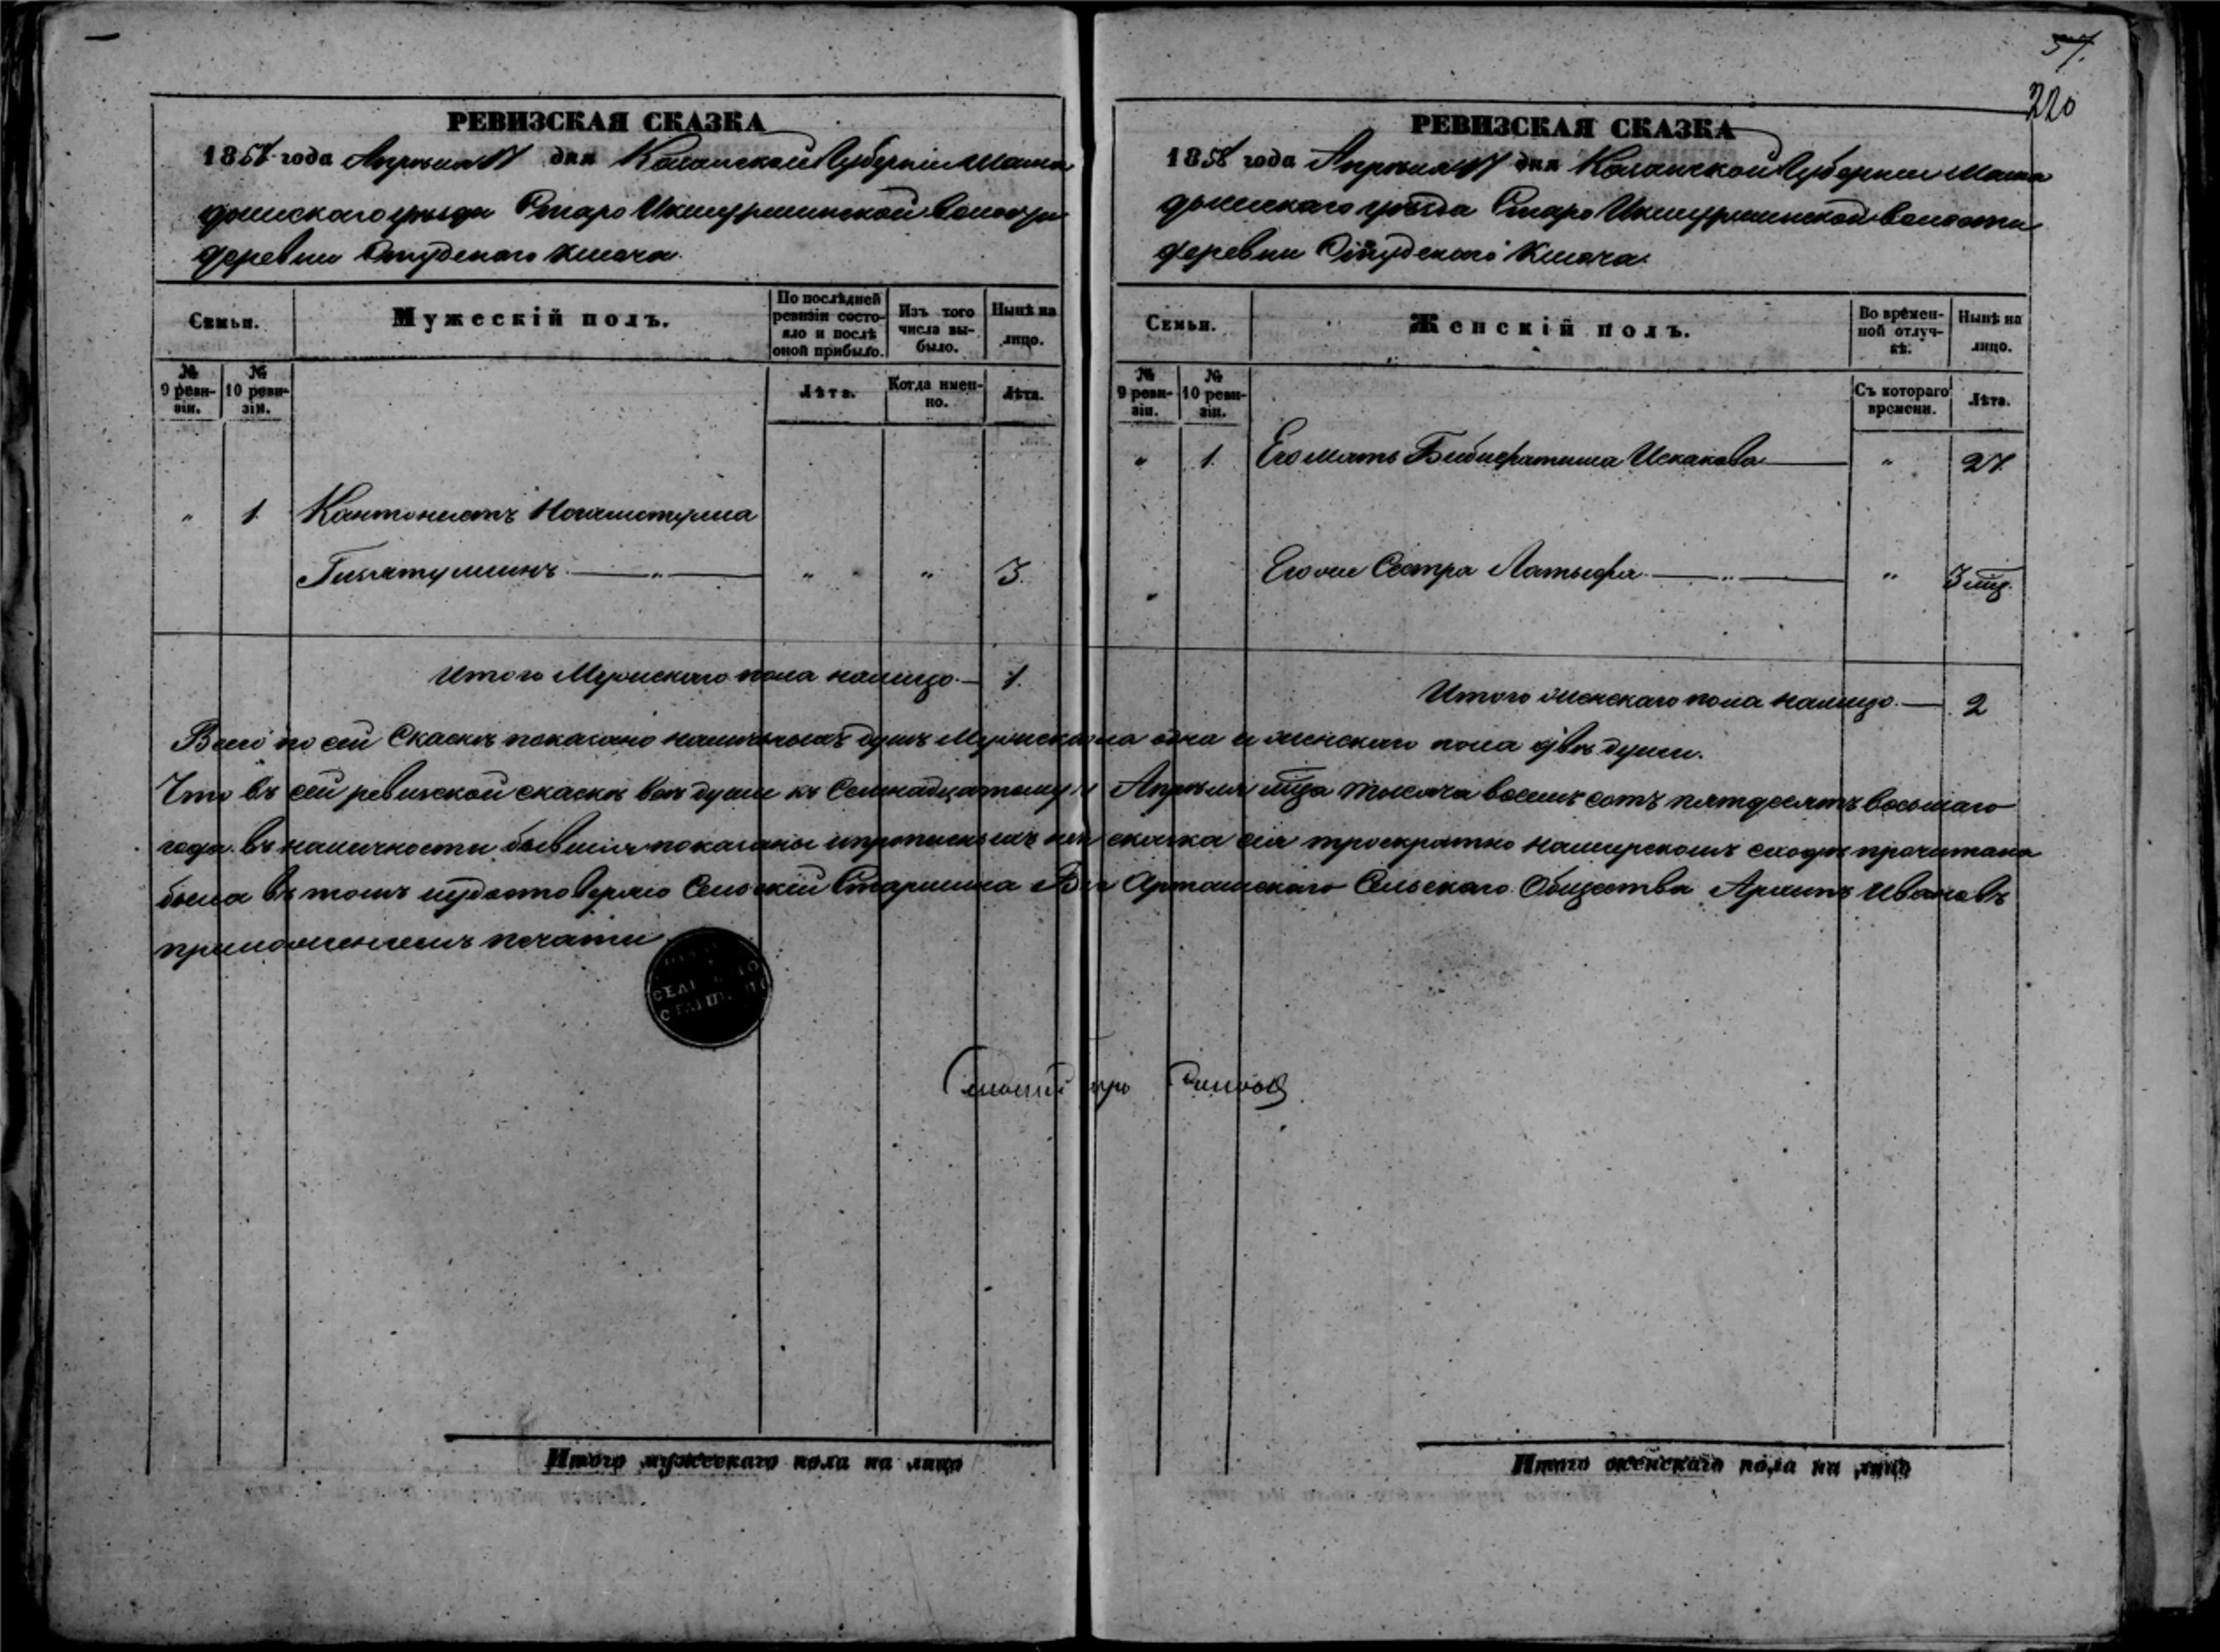 57.
220
РЕВИЗСКАЯ СКАЗКА
1858 года Апрѣля 17 дня Казанской Губерніи Мама
дышскаго уѣзда Старо Икшурминской волости
деревни Студенаго Ключа.
Семьи.
Мужескій полъ.
По послѣдней ревизіи состояло и послѣ оной прибыло.
Изъ того числа выбыло.
Нынѣ на лицо.
№ 9 ревизіи.
№ 10 ревизіи.
Лѣта.
Когда именно.
Лѣта.
" 1. Кантонистъ
Гизятуллинъ " " 3.
Итого Мужескаго пола налицо. 1.
РЕВИЗСКАЯ СКАЗКА
1858 года Апрѣля 17 дня Казанской Губерніи Мама
дышскаго уѣзда Старо Икшурминской волости
деревни Студенаго Ключа.
Семьи.
Женскій полъ.
Во временной отлучкѣ.
Нынѣ на лицо.
№ 9 ревизіи.
№ 10 ревизіи.
Съ котораго времени.
Лѣта.
" 1. Его мать Бибифатима Искакова " 27
" Его же Сестра Латыфа " 3
Итого женскаго пола налицо. 2
Всего по сей Скаскѣ показано наличныхъ душъ Мужеска пола одна и женскаго пола двѣ души.
Что въ сей ревизской скаскѣ всѣ души къ Семнадцатому Апрѣля мца тысяча восемь сотъ пятдесятъ восьмаго
года въ наличности бывшія показаны и прописныхъ нѣтъ сказка сія троекратно на мирскомъ сходѣ прочитана
была въ томъ и удостовѣряю Сельскій Старшина Сельскаго Общества Архипъ Ивановъ
приложеніемъ печати
Итого мужескаго пола на лицо
Итого женскаго пола на лицо